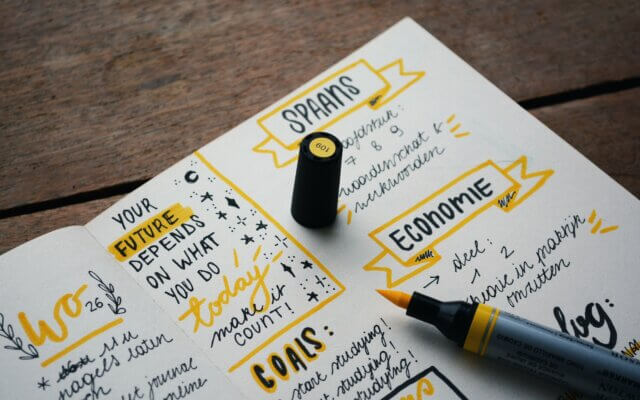 Wo 26
nagels laten
journal
online
YOUR
FUTURE
DEPENDS
ON WHAT
YOU DO
today
make it
COUNT!
GOALS:
start studying!
start studying!
studying!
SPAANS
7 8 9
woordenschat &
werkwoorden
ECONOMIE
→ deel:
1 2
theorie in praktijk
omzetten
109